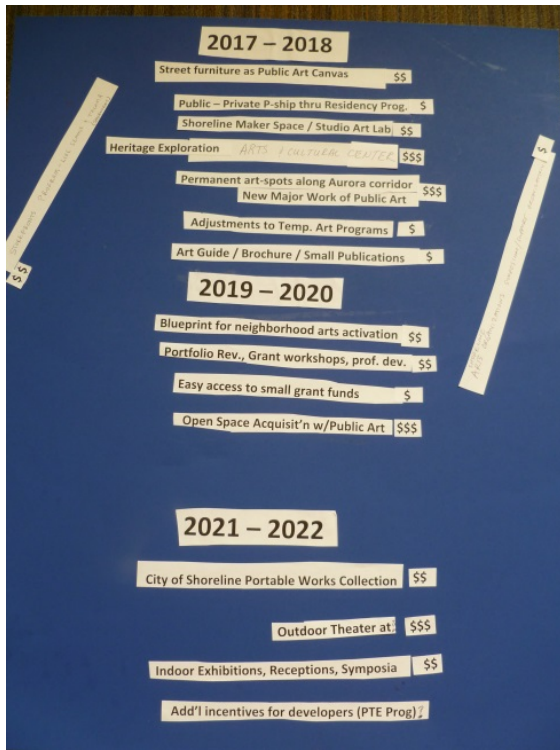 2017 – 2018
Street furniture as Public Art Canvas $$
Public – Private P-ship thru Residency Prog. $
Shoreline Maker Space / Studio Art Lab $$
Heritage Exploration ARTS & CULTURAL CENTER $$$
Permanent art-spots along Aurora corridor
New Major Work of Public Art $$$
Adjustments to Temp. Art Programs $
Art Guide / Brochure / Small Publications $
2019 – 2020
Blueprint for neighborhood arts activation $$
Portfolio Rev., Grant workshops, prof. dev. $$
Easy access to small grant funds $
Open Space Acquisit'n w/Public Art $$$
2021 – 2022
City of Shoreline Portable Works Collection $$
Outdoor Theater at: $$$
Indoor Exhibitions, Receptions, Symposia $$
Add'l incentives for developers (PTE Prog)?
$$
$